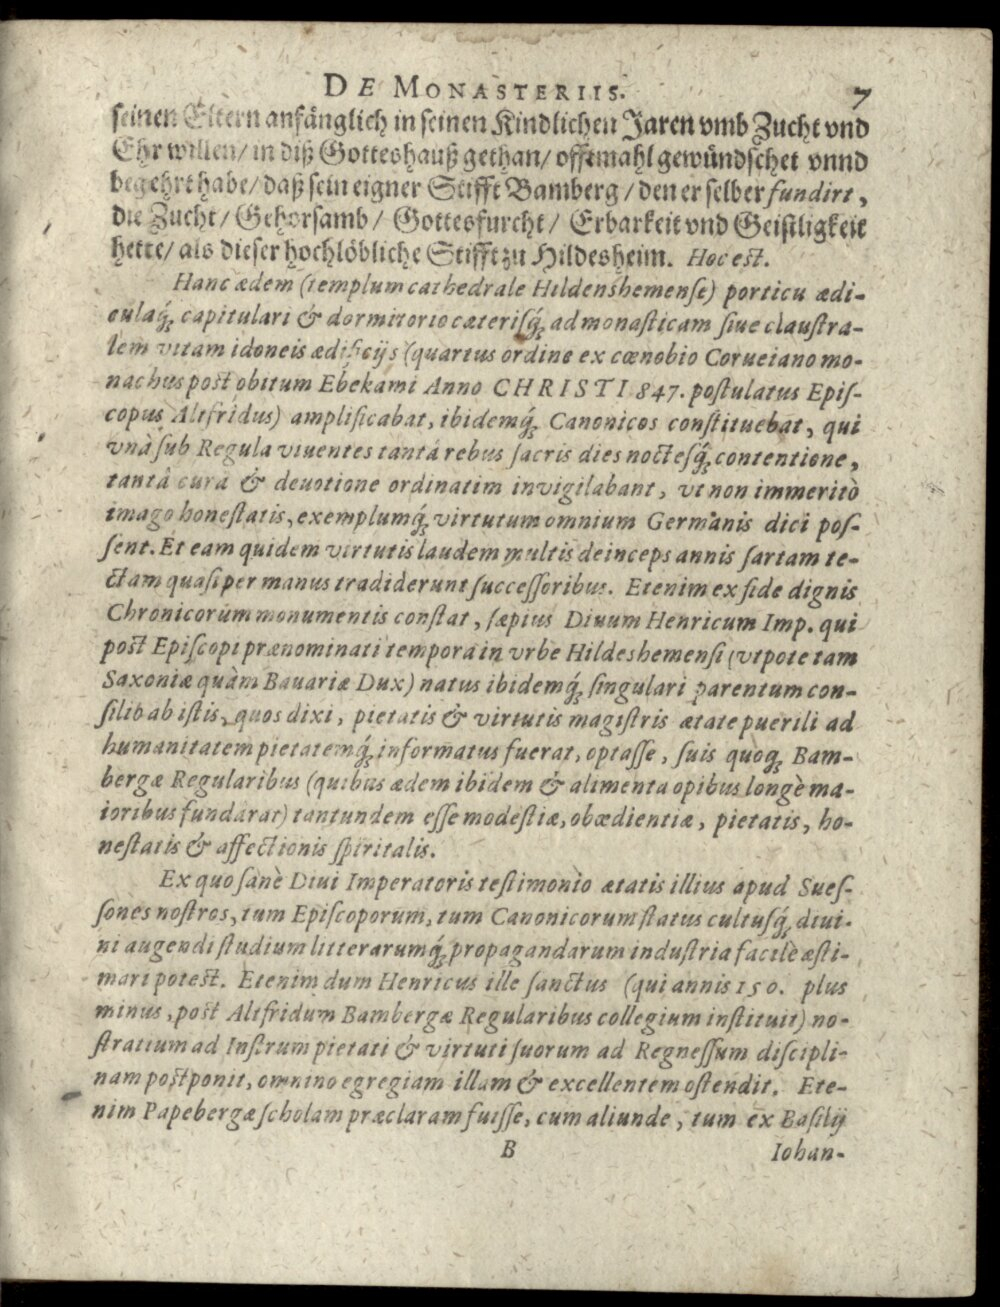 DE MONASTERIIS. 7
seinen Eltern anfänglich in seinen Kindlichen Jaren vmb Zucht vnd
Ehr willen/ in diß Gotteshauß gethan/ offtmahl gewündschet vnnd
begehrt habe/ daß sein eigner Stifft Bamberg/ den er selber fundirt,
die Zucht/ Gehorsamb/ Gottesfurcht/ Erbarkeit vnd Geistligkeit
hette/ als dieser hochlöbliche Stifft zu Hildesheim. Hoc est.
Hanc ædem (templum cathedrale Hildenshemense) porticu ædi-
culaq́; capitulari & dormitorio cæterisq́; ad monasticam siue claustra-
lem vitam idoneis ædificijs (quartus ordine ex cœnobio Corueiano mo-
nachus post obitum Ebekami Anno CHRISTI 847. postulatus Epis-
copus Altfridus) amplificabat, ibidemq́; Canonicos constituebat, qui
vnà sub Regula viuentes tantâ rebus sacris dies noctesq́; contentione,
tantâ curâ & deuotione ordinatim invigilabant, vt non immeritò
imago honestatis, exemplumq́; virtutum omnium Germanis dici pos-
sent. Et eam quidem virtutis laudem multis deinceps annis sartam te-
ctam quasi per manus tradiderunt successoribus. Etenim ex fide dignis
Chronicorum monumentis constat, sæpius Diuum Henricum Imp. qui
post Episcopi prænominati tempora in vrbe Hildeshemensi (vtpote tam
Saxoniæ quàm Bauariæ Dux) natus ibidemq́; singulari parentum con-
silio ab istis, quos dixi, pietatis & virtutis magistris ætate puerili ad
humanitatem pietatemq́; informatus fuerat, optasse, suis quoq; Bam-
bergæ Regularibus (quibus ædem ibidem & alimenta opibus longè ma-
ioribus fundârat) tantundem esse modestiæ, obœdientiæ, pietatis, ho-
nestatis & affectionis spiritalis.
Ex quo sanè Diui Imperatoris testimonio ætatis illius apud Sues-
sones nostros, tum Episcoporum, tum Canonicorum status cultusq́; diui-
ni augendi studium litterarumq́; propagandarum industria facilè æsti-
mari potest. Etenim dum Henricus ille sanctus (qui annis 150. plus
minus, post Altfridum Bambergæ Regularibus collegium instituit) no-
stratium ad Instrum pietati & virtuti suorum ad Regnessum discipli-
nam postponit, omnino egregiam illam & excellentem ostendit. Ete-
nim Papebergæ scholam præclaram fuisse, cum aliunde, tum ex Basilij
B Iohan-